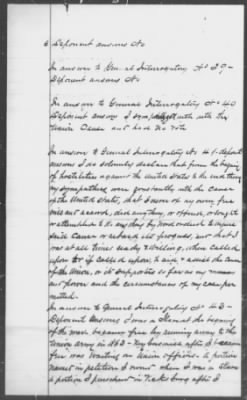 6 Deponent answers No
In answer to General Interrogatory No 39 -
Deponent answers No
In answer to General Interrogatory No 40
Deponent answers I sympathized with the
Union Cause and had no vote
In answer to General Interrogatory No 41 - deponent
answers I do solemnly declare that from the beginning
of hostilities against the United States to the end thereof
my sympathies were constantly with the Cause
of the United States, that I never of my own free
will and accord, did anything, or offered, or sought
or attempted to do anything by word or deed to injure
said Cause or retard its progress, and that I
was at all times ready & willing, when called
upon or if called upon, to aid & assist the cause
of the Union, or its Supporters so far as my means
and power and the circumstances of my case per-
mitted.
In answer to General Interrogatory No 43 -
Deponent answers I was a Slave at the beginning
of the war became free by running away to the
Union army in 1863 - My business after I became
free was Waiting on Union officers. A portion
named in petition I owned when I was a Slave
a portion I purchased in